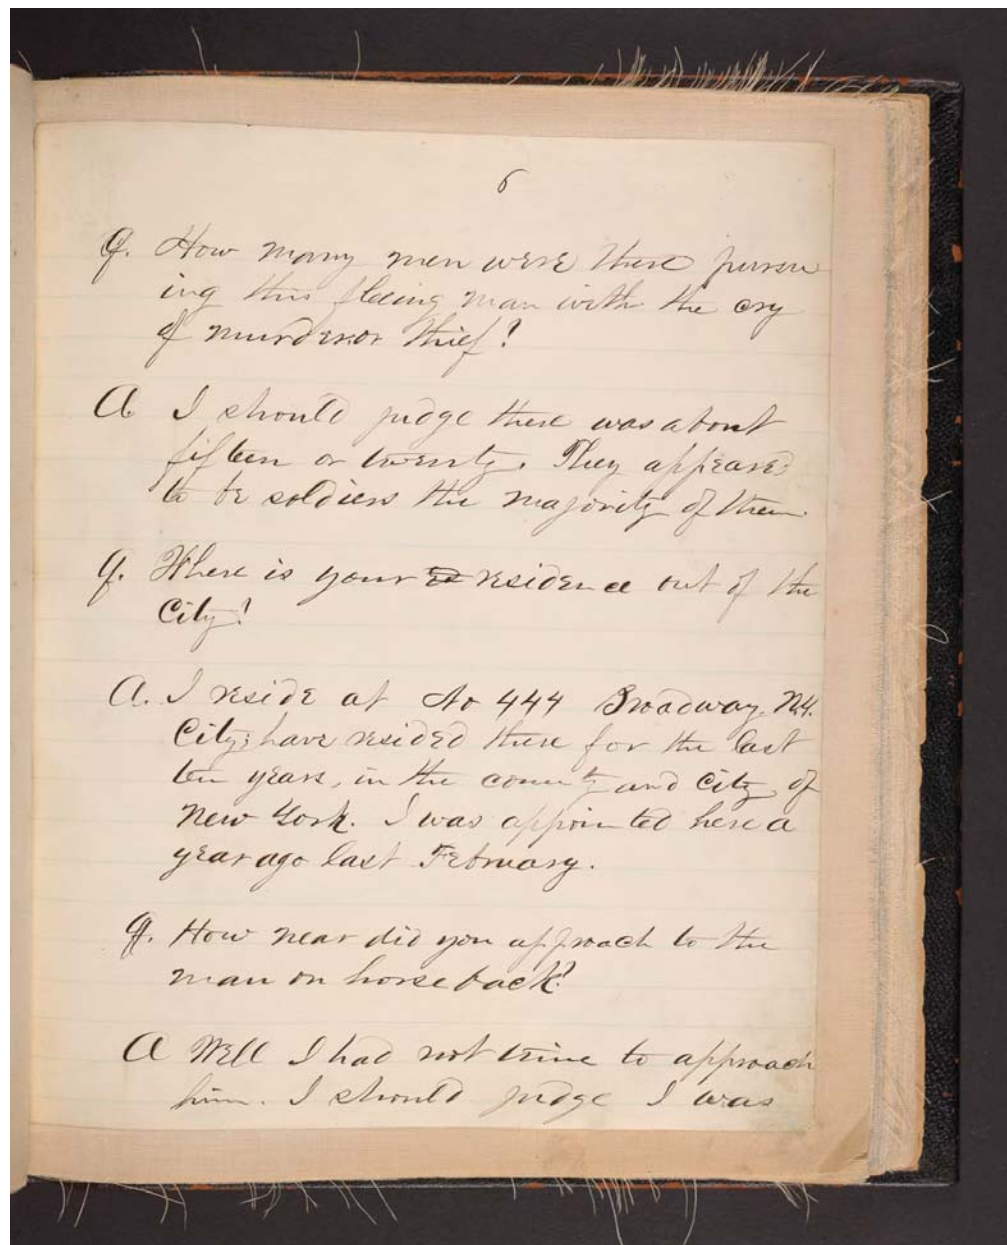 6
Q. How many men were there pursu
ing this fleeing man with the cry
of murder or thief?
A. I should judge there was about
fifteen or twenty. They appeared
to be soldiers the majority of them.
Q. Where is your residence out of the
City?
A. I reside at No 444 Broadway N.Y.
City; have resided there for the last
ten years, in the county and City of
New York. I was appointed here a
year ago last February.
Q. How near did you approach to the
man on horseback?
A Well I had not time to approach
him. I should judge I was